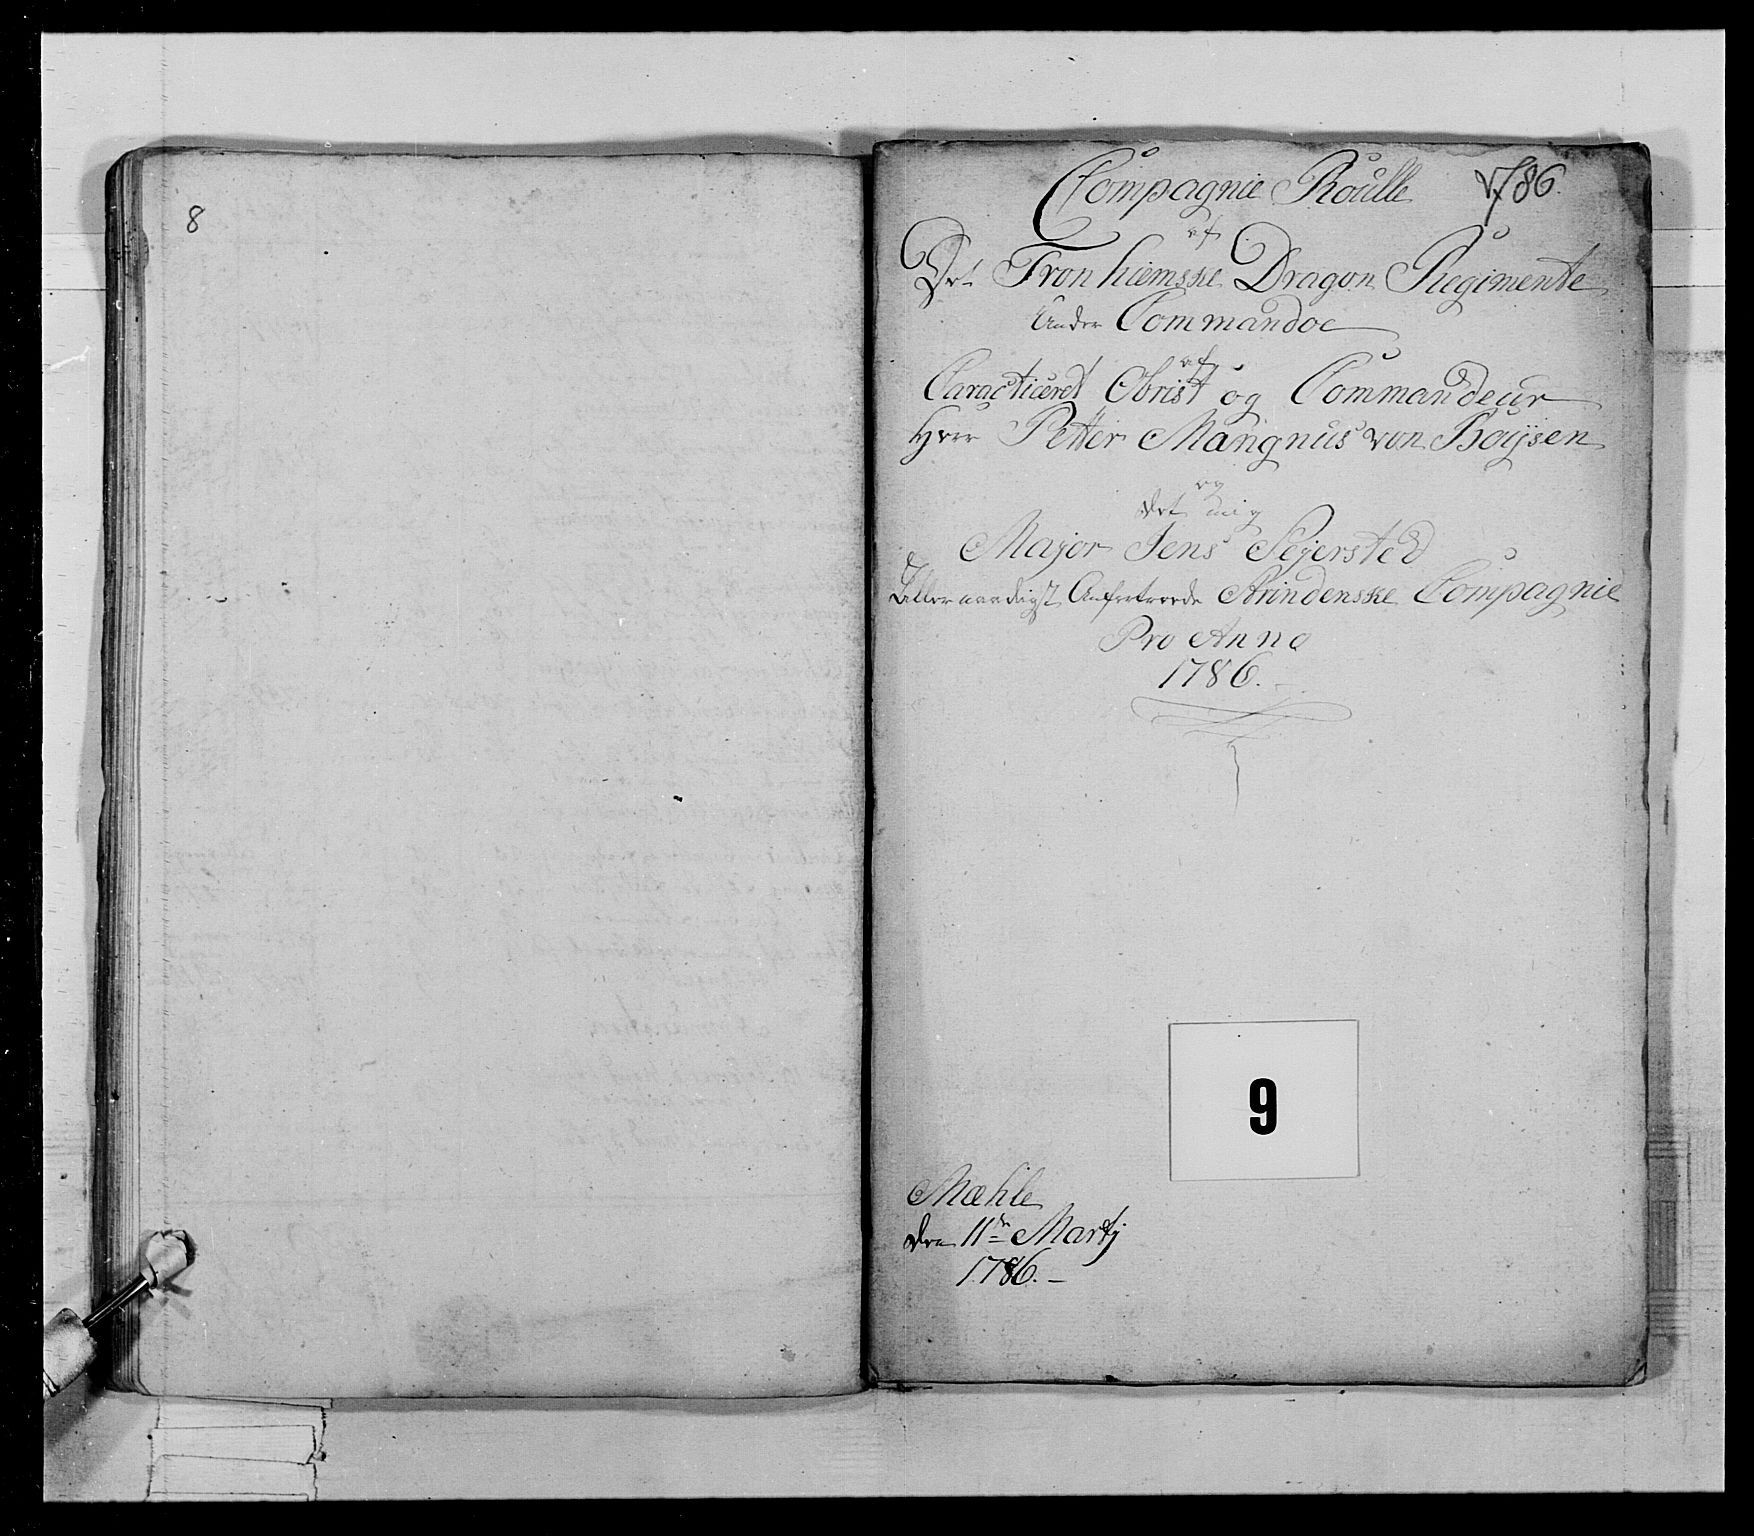 8
Compagnie Roulle 1786.
af
Det Tronhiemske Dragon Regimente
Under Commandoe
af
Caracticeret Obrist og Commandeur
Herr Petter Mangnus von Boysen
og
det mig
Major Jens Sejersted
Allernaadigst Anfortroede Strindenske Compagnie
Pro Anno
1786.
9
Mæhle
den 11te Martj
1786.